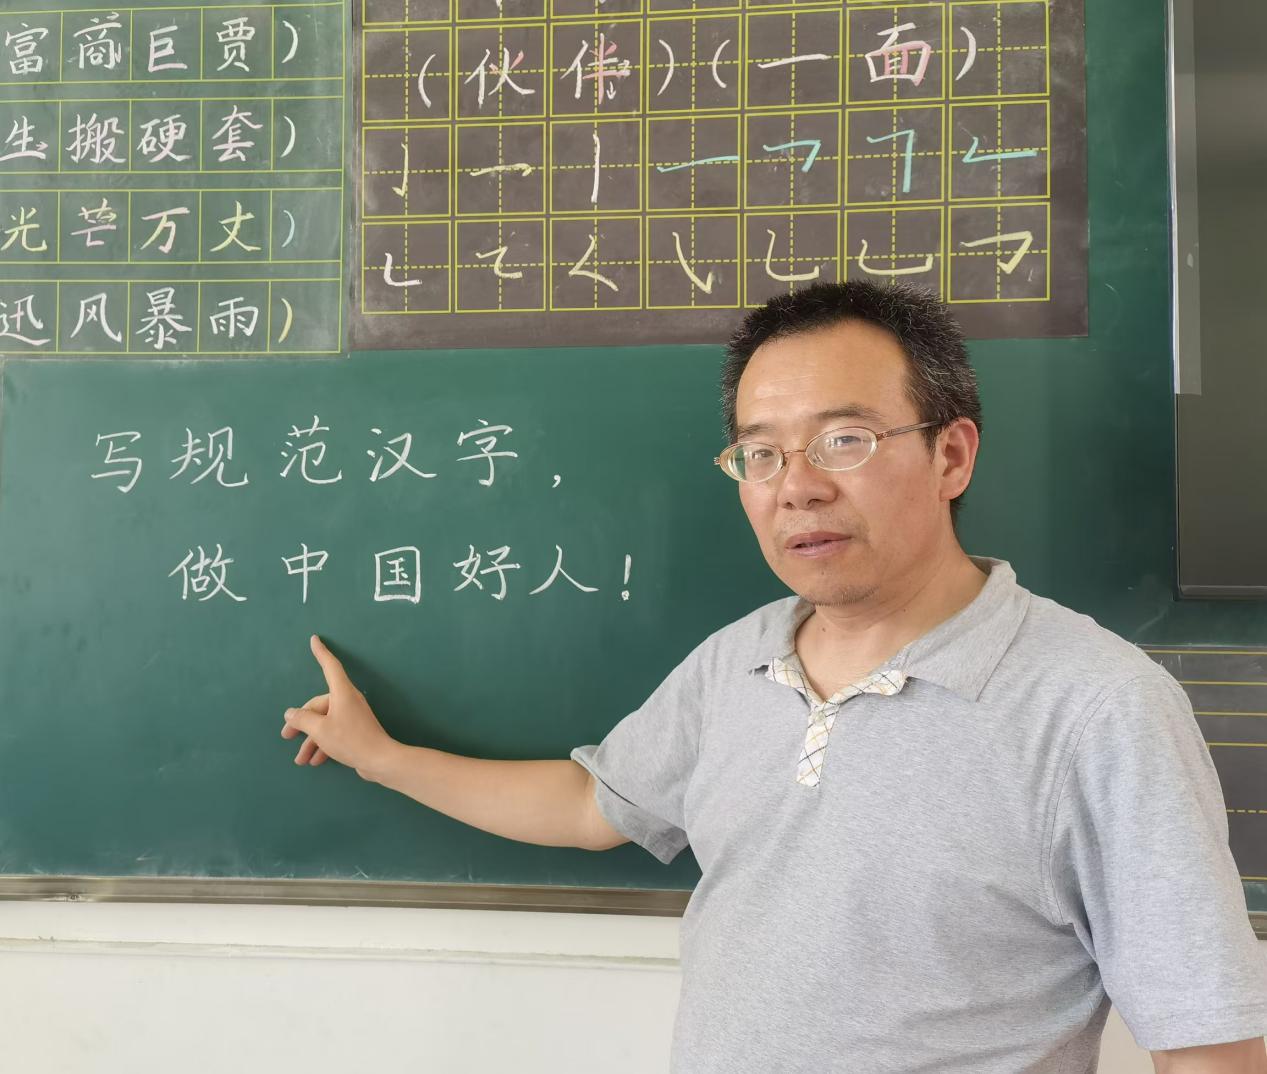 富商巨贾)
生搬硬套)
光芒万丈)
迅风暴雨)
(伙伴)(一面)
写规范汉字,
做中国好人!